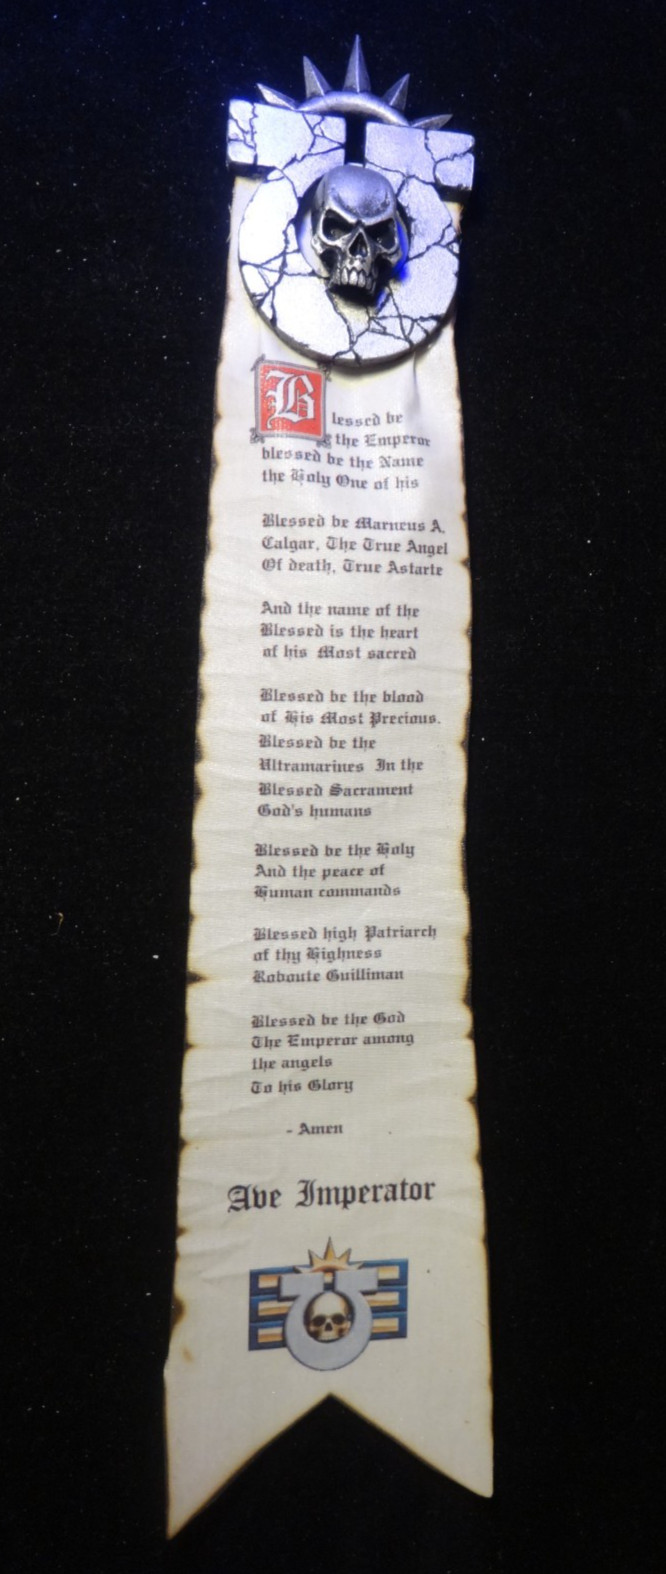 Blessed be
the Emperor
blessed be the Name
the Holy One of his
Blessed be Marneus A.
Calgar, The True Angel
Of death, True Astarte
And the name of the
Blessed is the heart
of his Most sacred
Blessed be the blood
of His Most Precious.
Blessed be the
Ultramarines In the
Blessed Sacrament
God's humans
Blessed be the Holy
And the peace of
Human commands
Blessed high Patriarch
of thy Highness
Roboute Guilliman
Blessed be the God
The Emperor among
the angels
To his Glory
- Amen
Ave Imperator